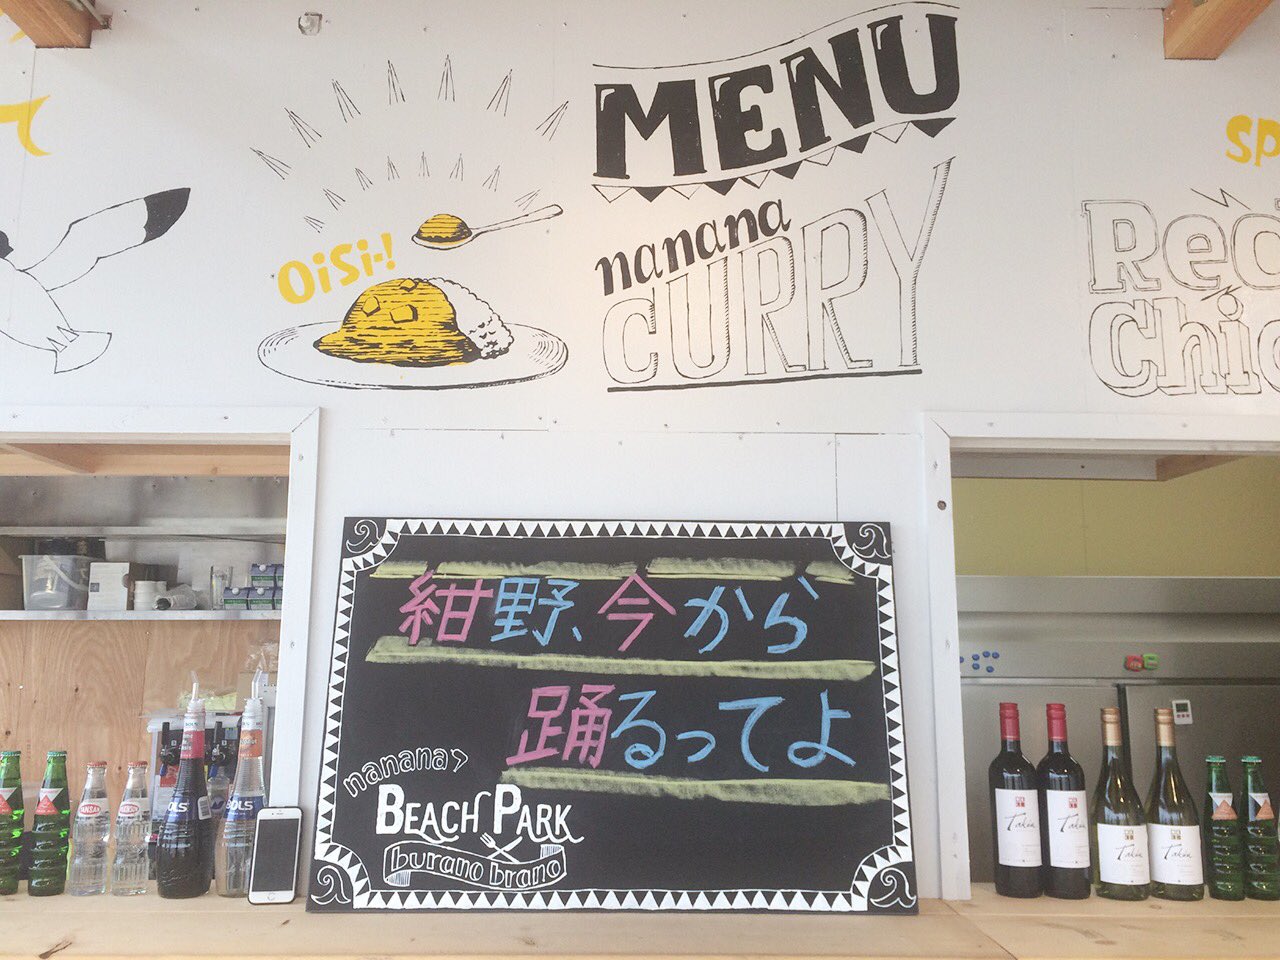 MENU
nanana
CURRY
OiSi-!
sp
Red
Chic
紺野、今から
踊るってよ
nanana
BEACH PARK
burano brano
BOLS
Takun
Takun
Takun
Takun